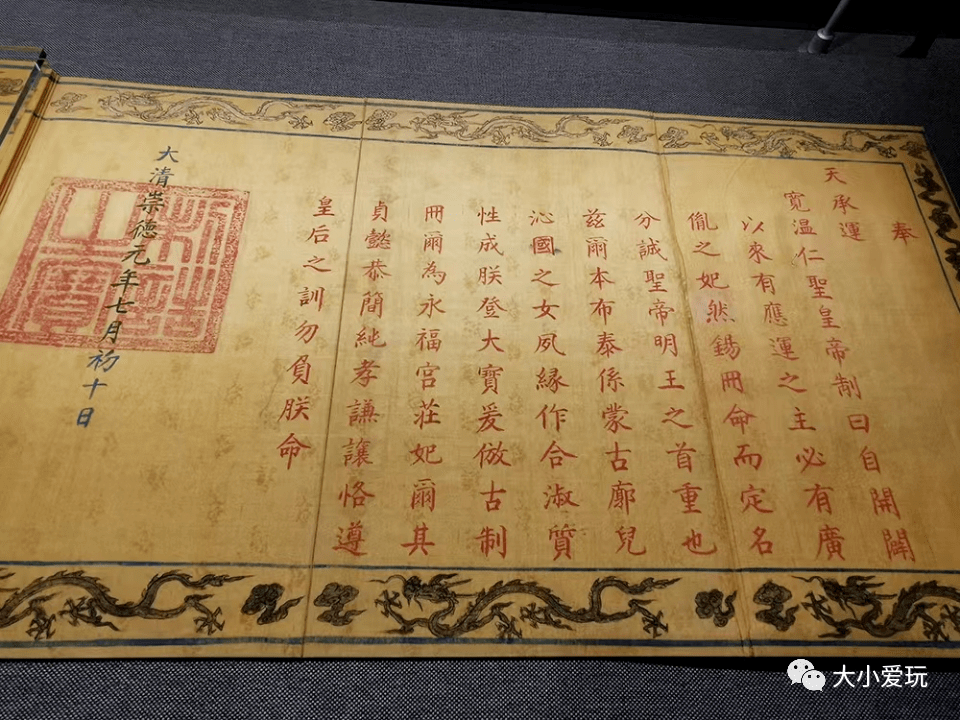 奉
天承運
寬温仁聖皇帝制曰自開闢
以來有應運之主必有廣
胤之妃然錫冊命而定名
分誠聖帝明王之首重也
兹爾本布泰係蒙古廓兒
沁國之女夙縁作合淑質
性成朕登大寶爰倣古制
冊爾為永福宮莊妃爾其
貞懿恭簡純孝謙讓恪遵
皇后之訓勿負朕命
大清崇德元年七月初十日
大小爱玩